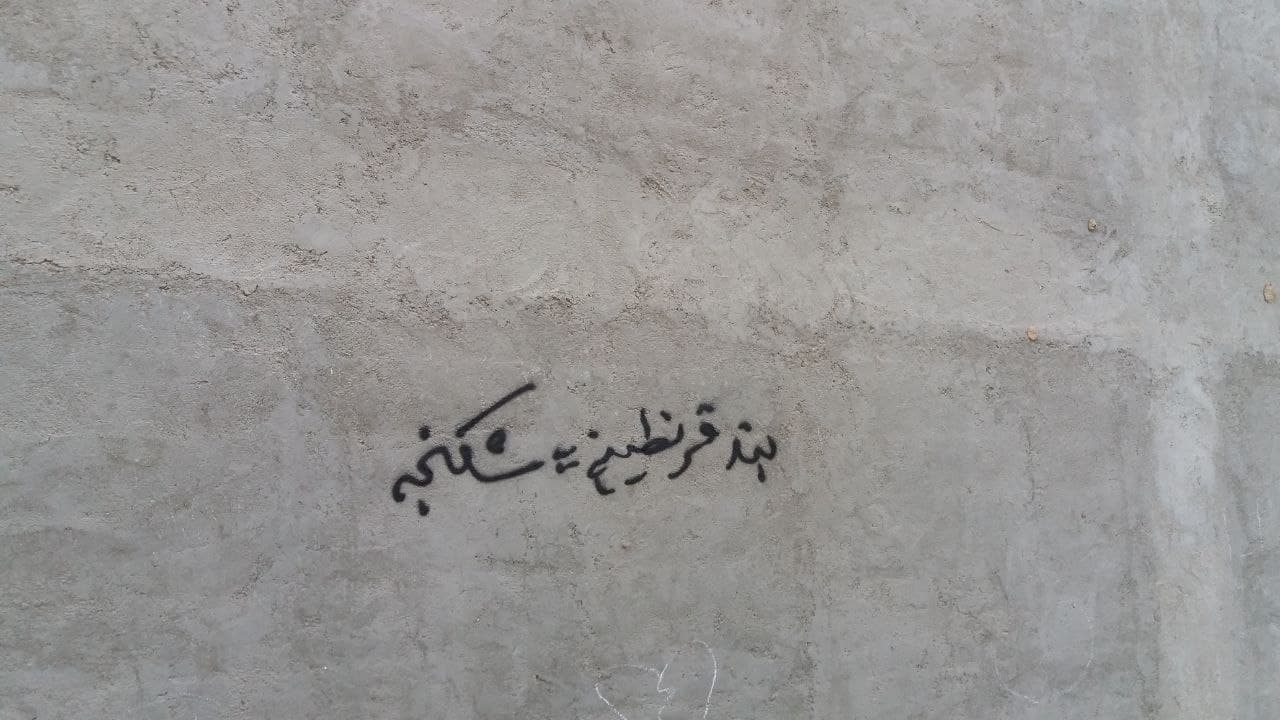 بند قرنطینه یه شکنجه